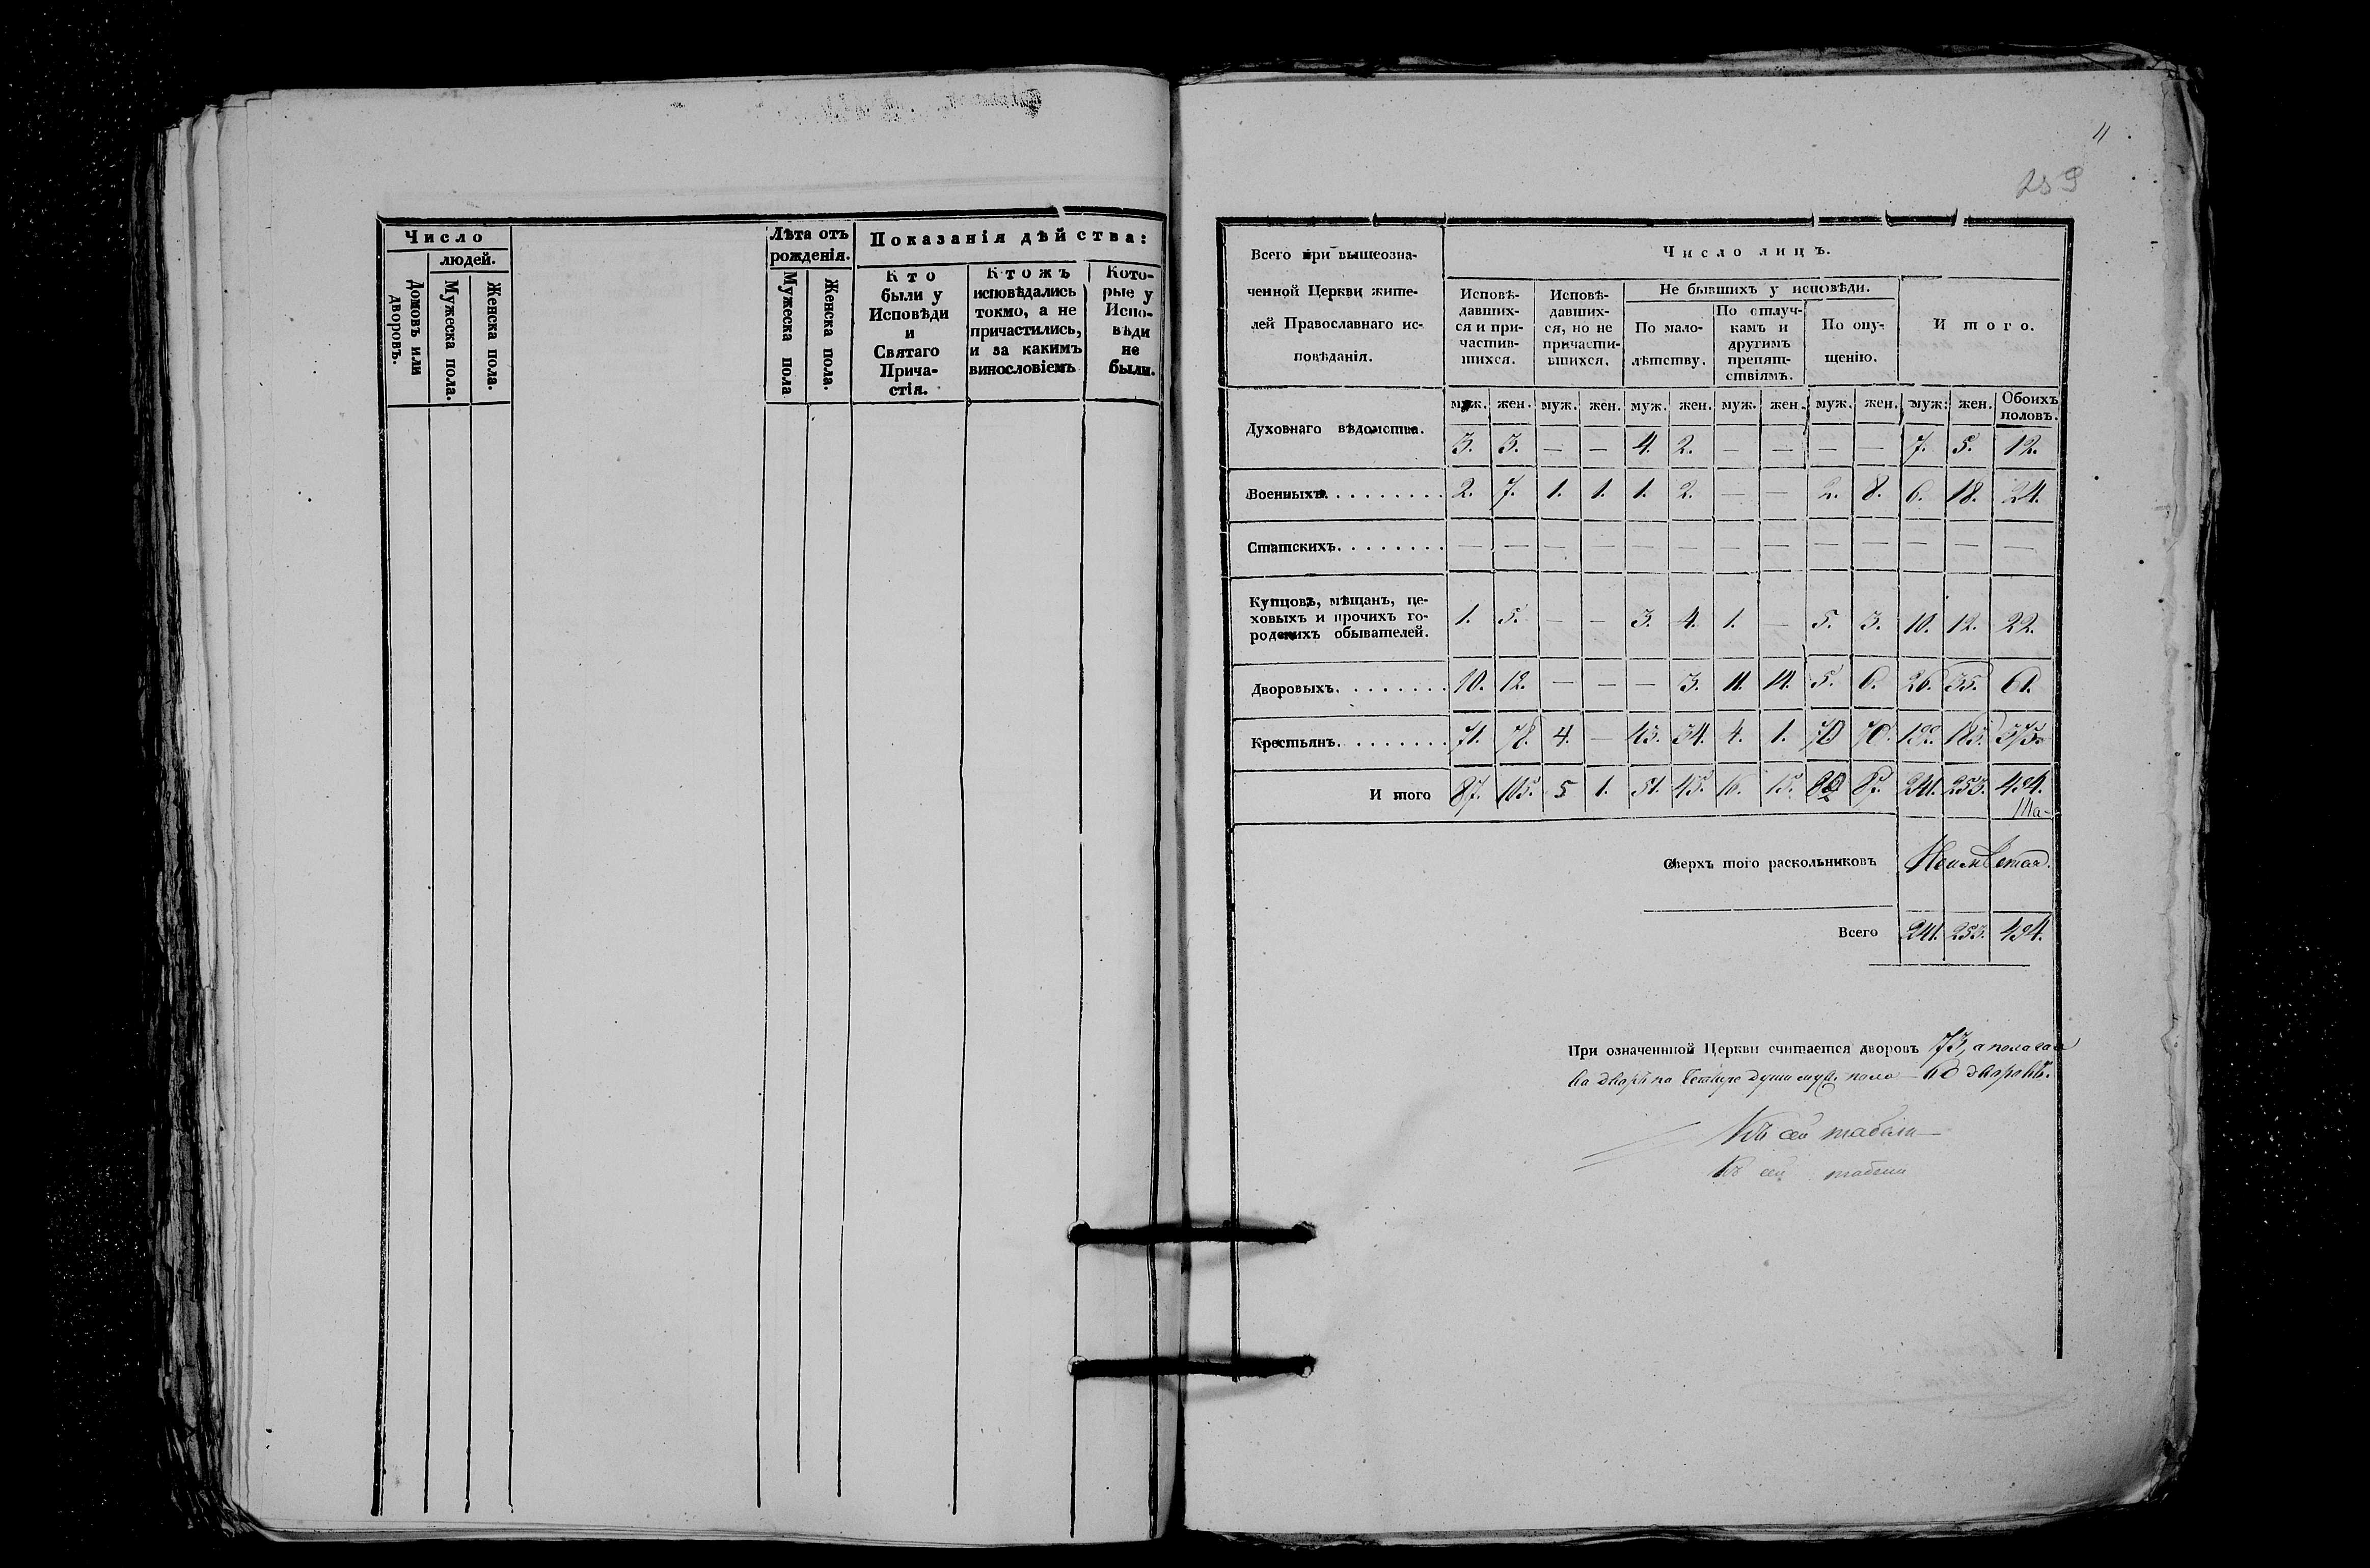 Число
людей.
Домовъ или дворовъ.
Мужеска пола.
Женска пола.
Лѣта отъ
рожденія.
Мужеска пола
Женска пола.
Показанія дѣйства:
Кто
были у
Исповѣди
и
Святаго
Прича-
стія.
Ктожъ
исповѣдались
токмо, а не
причастились,
и за какимъ
винословіемъ
Кото-
рые у
Испо-
вѣди
не
были.
11
259
Всего при вышеозна-
ченной Церкви жите-
лей Православнаго ис-
повѣданія.
Число лицъ.
Исповѣ-
давших-
ся и при-
частив-
шихся.
Исповѣ-
давших-
ся, но не
причасти-
вшихся.
Не бывшихъ у исповѣди.
По мало-
лѣтству.
По отлуч-
камъ и
другимъ
препят-
ствіямъ.
По опу-
щенію.
Итого.
муж. жен. муж. жен. муж. жен. муж. жен. муж. жен. муж: жен. Обоихъ половъ.
Духовнаго вѣдомства. 3. 3. — — 4. 2. — — — — 7. 5. 12.
Военныхъ. . . . . . . . . 2. 7. 1. 1. 1. 2. — — 2. 8. 6. 18. 24.
Статскихъ. . . . . . . . — — — — — — — — — — — — —
Купцовъ, мѣщанъ, це-
ховыхъ и прочихъ го-
родскихъ обывателей. 1. 5. — — 3. 4. 1. — 5. 3. 10. 12. 22.
Дворовыхъ. . . . . . . . 10. 12. — — — 3. 11. 14. 5. 6. 26. 35. 61.
Крестьянъ. . . . . . . . 71. 78. 4. — 43. 34. 4. 1. 70 70. 192. 183. 375.
И того 87. 105. 5 1. 51. 45. 16. 15. 82 87. 241. 253. 494.
Сверхъ того раскольниковъ
Всего 241. 253. 494.
При означенной Церкви считается дворовъ 73, а полагая
на дворъ по четыре души муж. пола — 60 дворовъ.
Къ сей табели
Къ сей табели